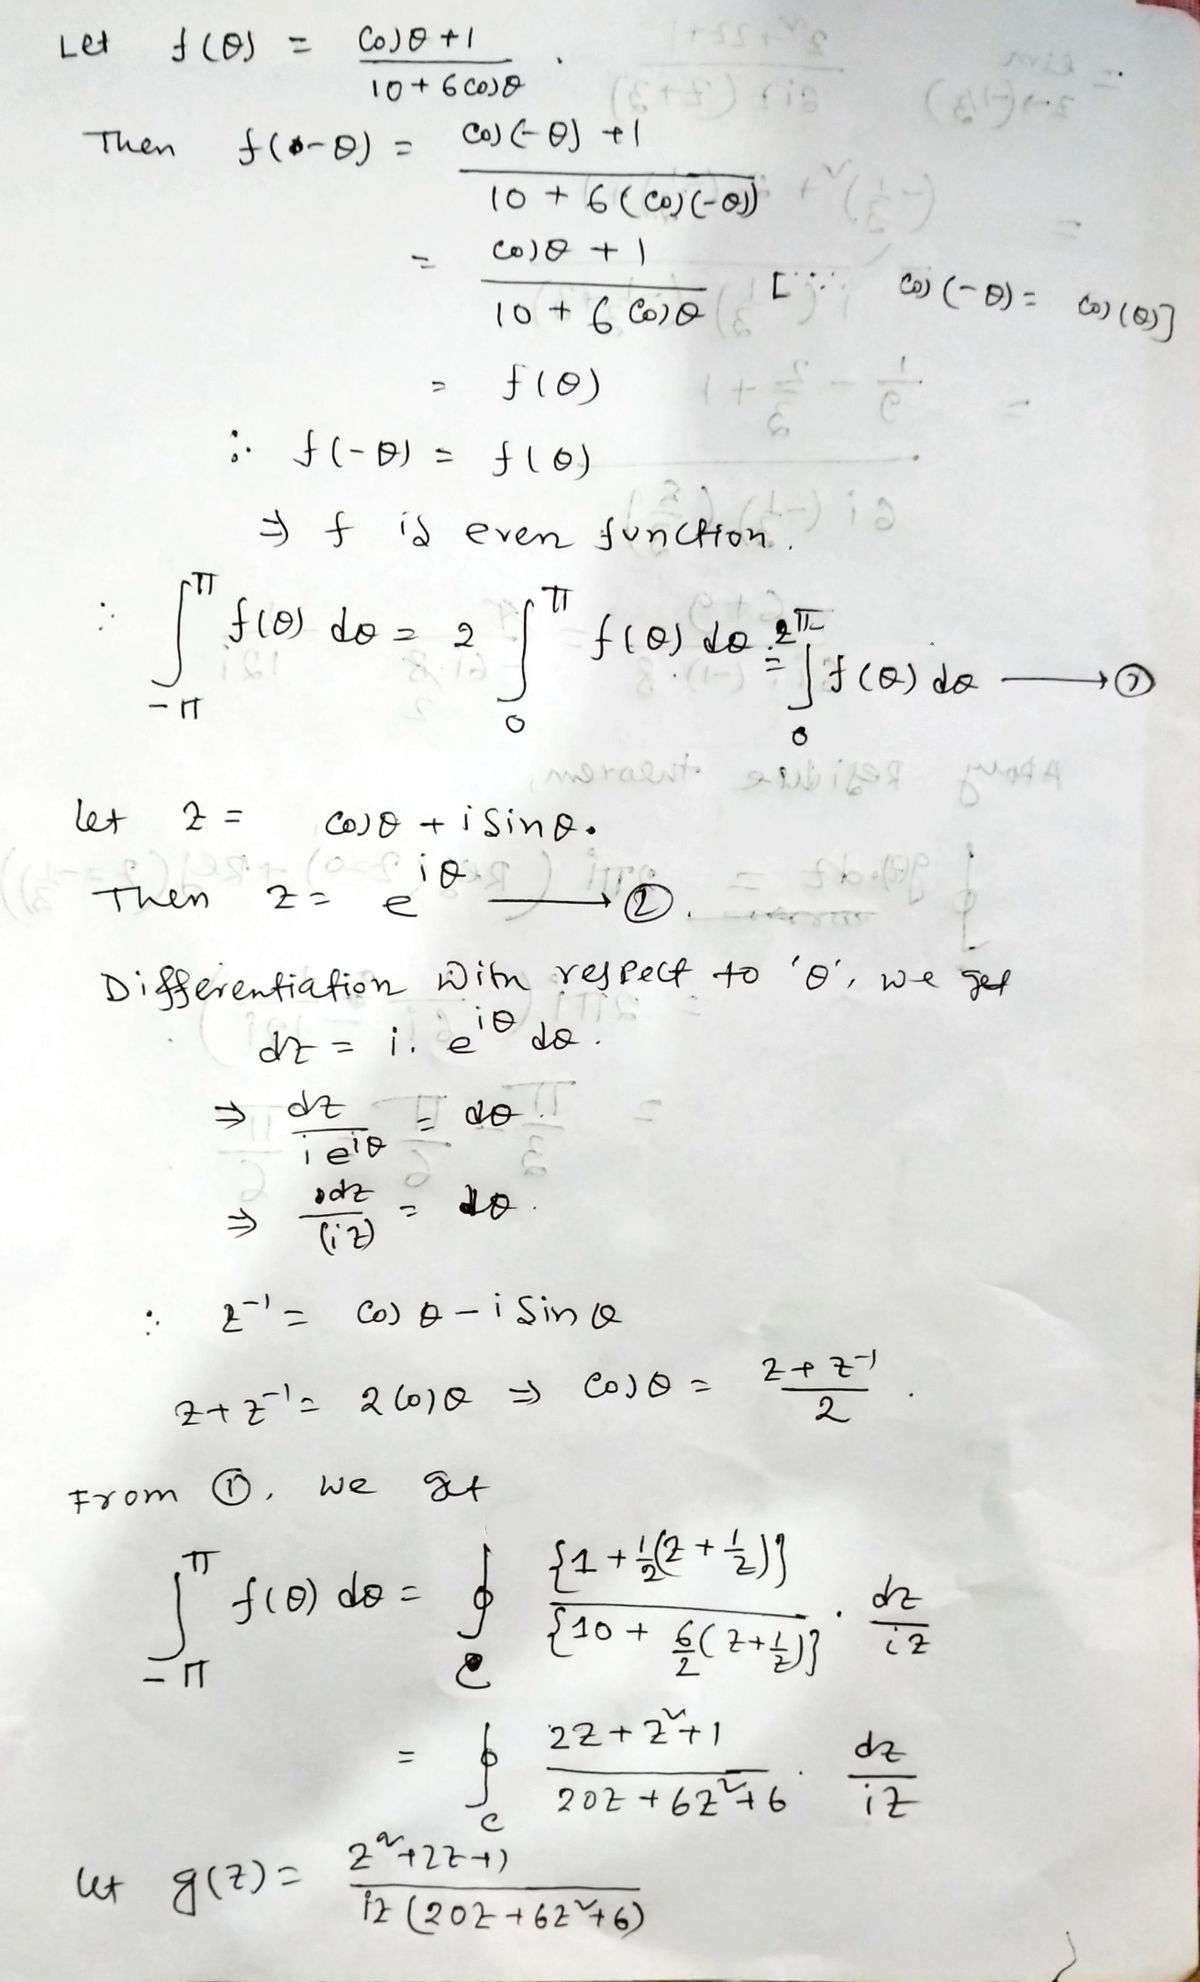 Let f(θ) = (cosθ+1)/(10+6cosθ).
Then f(-θ) = (cos(-θ)+1)/(10+6(cos(-θ)))
= (cosθ+1)/(10+6cosθ) [∵ cos(-θ)= cos(θ)]
= f(θ)
∴ f(-θ) = f(θ)
⇒ f is even function.
∴ ∫_{-π}^{π} f(θ) dθ = 2 ∫_0^π f(θ) dθ = ∫_0^{2π} f(θ) dθ ⟶ ①
Let z = cosθ + i sinθ.
Then z = e^{iθ} ⟶ ②.
Differentiation with respect to 'θ', we get
dz = i. e^{iθ} dθ.
⇒ dz/(i e^{iθ}) = dθ.
⇒ dz/(iz) = dθ.
∴ z^{-1} = cosθ - i sinθ
z+z^{-1} = 2cosθ ⇒ cosθ = (z+z^{-1})/2.
From ①, we get
∫_{-π}^{π} f(θ) dθ = ∮_C {1+½(z+1/z)}/{10+6/2(z+1/z)} · dz/iz
= ∮_C (2z+z²+1)/(20z+6z²+6) · dz/iz
let g(z) = (z²+2z+1)/(iz(20z+6z²+6))